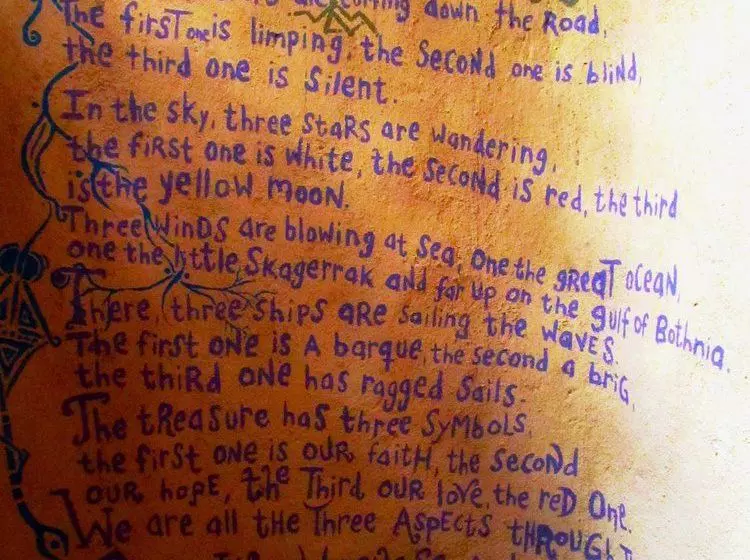 coming down the Road,
The first one is limping, the second one is blind,
the third one is Silent.
In the sky, three staRs are wandering,
the fiRst one is white, the second is red, the third
is the yellow moon.
Three winDS are blowing at sea, one the gReaT oCean,
one the little Skagerrak and far up on the gulf of Bothnia.
There, three ships aRe sailing the waves.
The first oNe is A barque, the second a brig,
the thiRd one has ragged Sails.
The tReasure haS three SyMboLS,
the first one is ouR faitH, the second
ouR hopE, the Third ouR love, the reD One.
We are all tHe Three AspEcts tHRoUGH